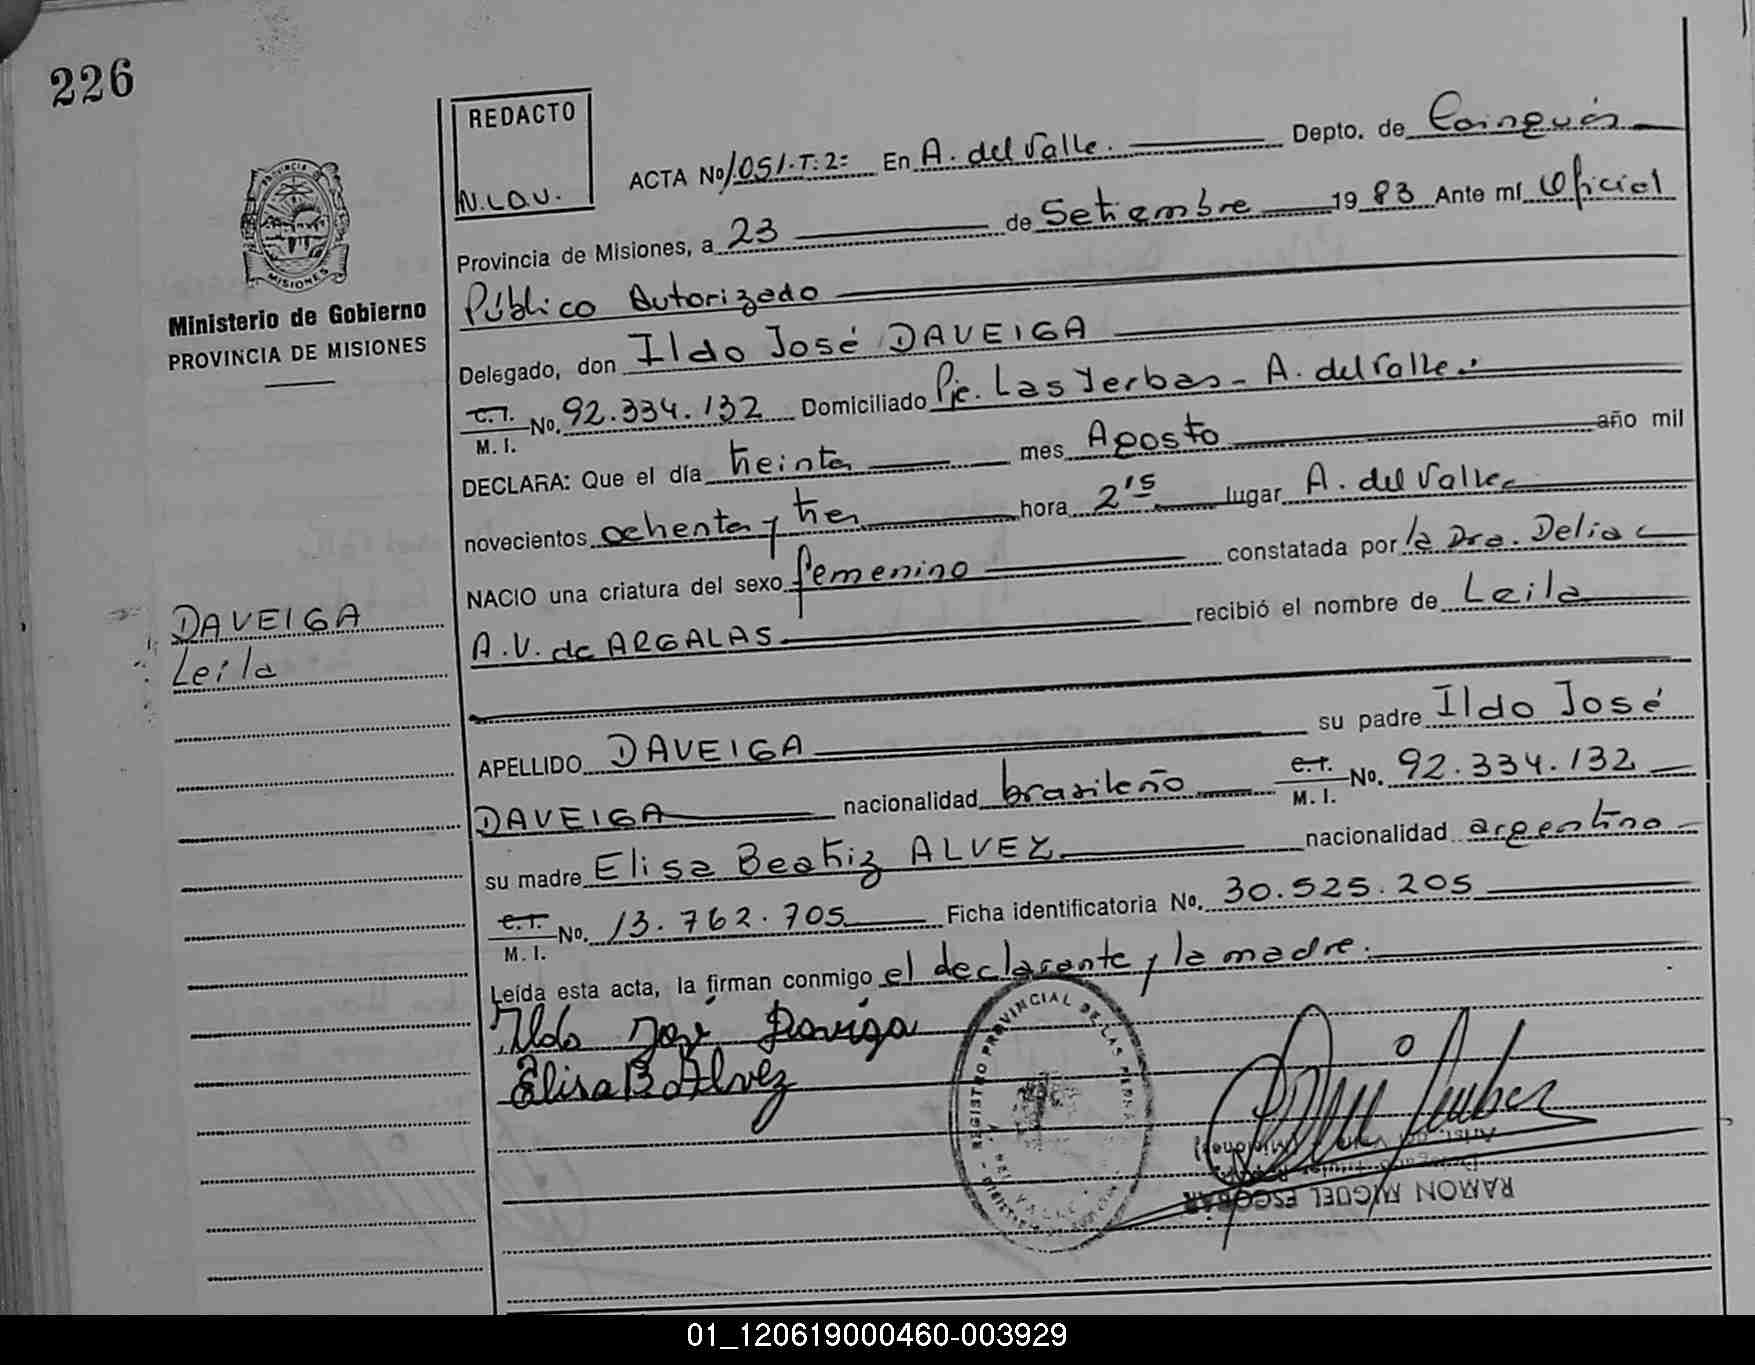 226
REDACTO
N.L.O.V.
ACTA No 1051.T:2= En A. del Valle. Depto. de Cainguás
Provincia de Misiones, a 23 de Setiembre 1983 Ante mí Oficial
Público Autorizado
Delegado, don Ildo José DAVEIGA
C.I. M. I. No. 92.334.132 Domiciliado Pje. Las Yerbas - A. del Valle.
DECLARA: Que el día treinta mes Agosto año mil
novecientos ochenta y tres hora 2'15 lugar A. del Valle
NACIO una criatura del sexo femenino constatada por la Dra. Delia
A.V. de ARGALAS recibió el nombre de Leila
APELLIDO DAVEIGA su padre Ildo José
DAVEIGA nacionalidad brasileño C.I. M. I. No. 92.334.132
su madre Elisa Beatriz ALVEZ nacionalidad argentina
C.I. M. I. No. 13.762.705 Ficha identificatoria No. 30.525.205
Leída esta acta, la firman conmigo el declarante y la madre.
Ildo José Daveiga
Elisa B Alvez
REGISTRO PROVINCIAL DE LAS PERSONAS
A. DEL VALLE
RAMON MIGUEL ESCOBAR
PROVINCIA
MISIONES
Ministerio de Gobierno
PROVINCIA DE MISIONES
DAVEIGA
Leila
01_120619000460-003929